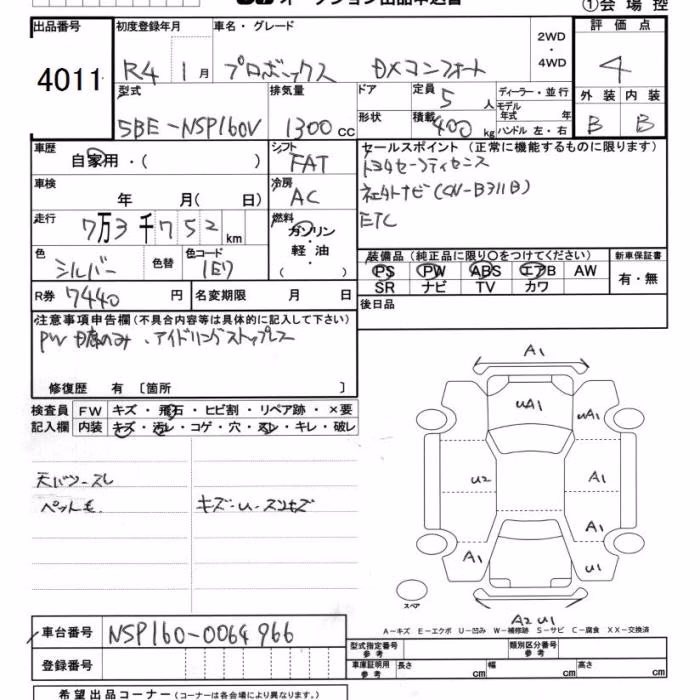 ①会場控
出品番号
4011
初度登録年月
R4 1月
車名・グレード
プロボックス DXコンフォート
2WD
・
4WD
評価点
4
型式
5BE-NSP160V
排気量
1300cc
ドア
定員
5人
形状
積載
400kg
ディーラー・並行
モデル年式 年
ハンドル 左・右
外装 内装
B B
車歴
自家用・( )
シフト
FAT
車検
年 月( 日)
冷房
AC
走行
7万3千752km
燃料
ガソリン
・
軽油
・
( )
色
シルバー
色替
色コード
1E7
R券 7440円
名変期限 月 日
セールスポイント(正常に機能するものに限ります)
トヨタセーフティセンス
ネエタナビ(CN-B311B)
ETC
装備品(純正品に限り○をつけてください)
新車保証書
PS PW ABS エアB AW
SR ナビ TV カワ
有・無
後日品
注意事項申告欄(不具合内容等は具体的に記入して下さい)
PW 前席のみ、アイドリングストップレス
修復歴 有〔箇所 〕
検査員
記入欄
FW キズ・飛石・ヒビ割・リペア跡・×要
内装 キズ・汚レ・コゲ・穴・スレ・キレ・破レ
天バリ・スレ
ペット毛
キズ・U・スリキズ
A1
uA1
U2
A1
A1
A1
U1
スペア
A2 U1
A-キズ E-エクボ U-凹み W-補修跡 S-サビ C-腐食 XX-交換済
車台番号
NSP160-0064966
登録番号
型式指定番号
参考
類別区分番号
参考
車庫証明用
参考
長さ cm 幅 cm 高さ cm
希望出品コーナー(コーナーは各会場により異なります。)